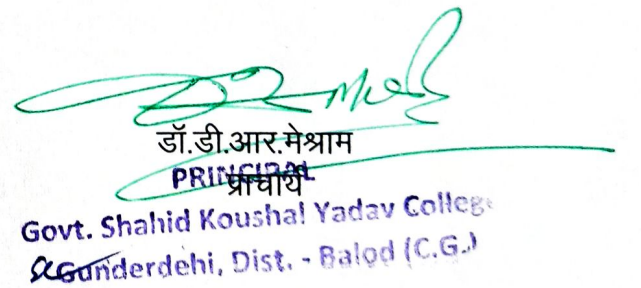 डॉ.डी.आर.मेश्राम
PRINCIPAL
प्राचार्य
Govt. Shahid Koushal Yadav College
Gunderdehi, Dist. - Balod (C.G.)